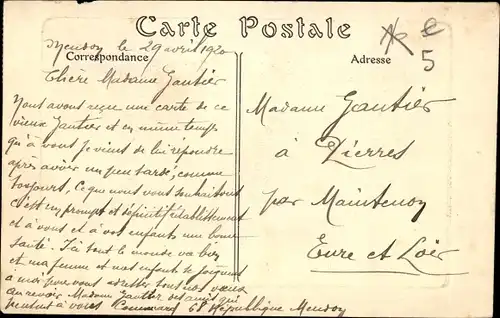 Carte Postale
Meudon le 29 avril 1920
Correspondance
Chère Madame Gautier
Nous avons reçue une carte de ce
vieux Gautier et en même temps
qu'à vous je viens de lui répondre
après avoir un peu tardé, comme
toujours. Ce que nous vous souhaitons
c'est un prompt et définitif rétablissement
et à vous et à vos enfants une bonne
santé. Ici tout le monde va bien
et ma femme et mes enfants se joignent
à moi pour vous adresser tous nos vœux
au revoir Madame Gautier des amis qui
pensent à vous 68 République Meudon
Adresse
5
Madame Gautier
à Pierres
par Maintenon
Eure et Loir